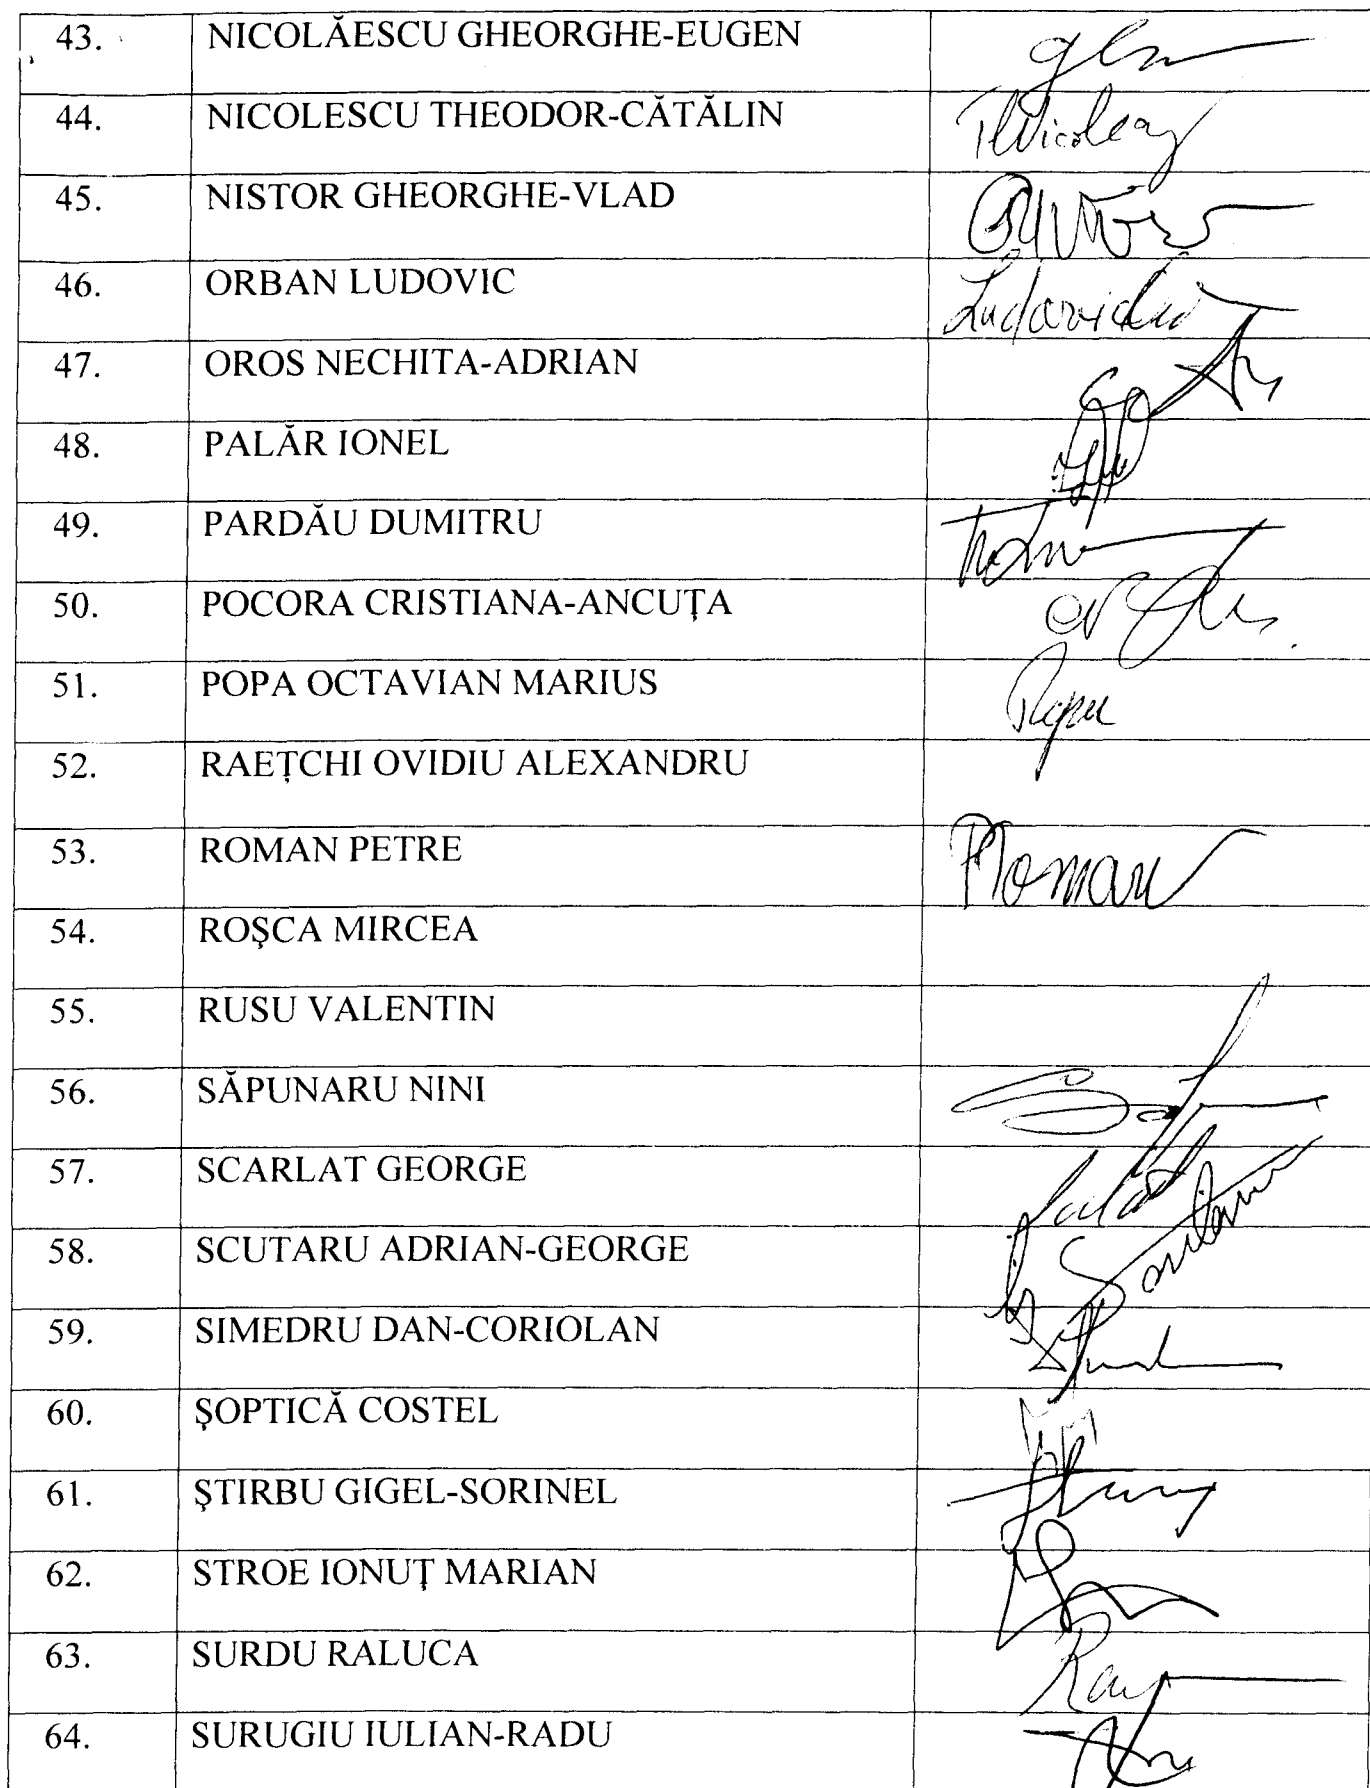 43. NICOLĂESCU GHEORGHE-EUGEN
44. NICOLESCU THEODOR-CĂTĂLIN
45. NISTOR GHEORGHE-VLAD
46. ORBAN LUDOVIC
47. OROS NECHITA-ADRIAN
48. PALĂR IONEL
49. PARDĂU DUMITRU
50. POCORA CRISTIANA-ANCUŢA
51. POPA OCTAVIAN MARIUS
52. RAEŢCHI OVIDIU ALEXANDRU
53. ROMAN PETRE PRoman
54. ROŞCA MIRCEA
55. RUSU VALENTIN
56. SĂPUNARU NINI
57. SCARLAT GEORGE
58. SCUTARU ADRIAN-GEORGE
59. SIMEDRU DAN-CORIOLAN
60. ŞOPTICĂ COSTEL
61. ŞTIRBU GIGEL-SORINEL
62. STROE IONUŢ MARIAN
63. SURDU RALUCA
64. SURUGIU IULIAN-RADU